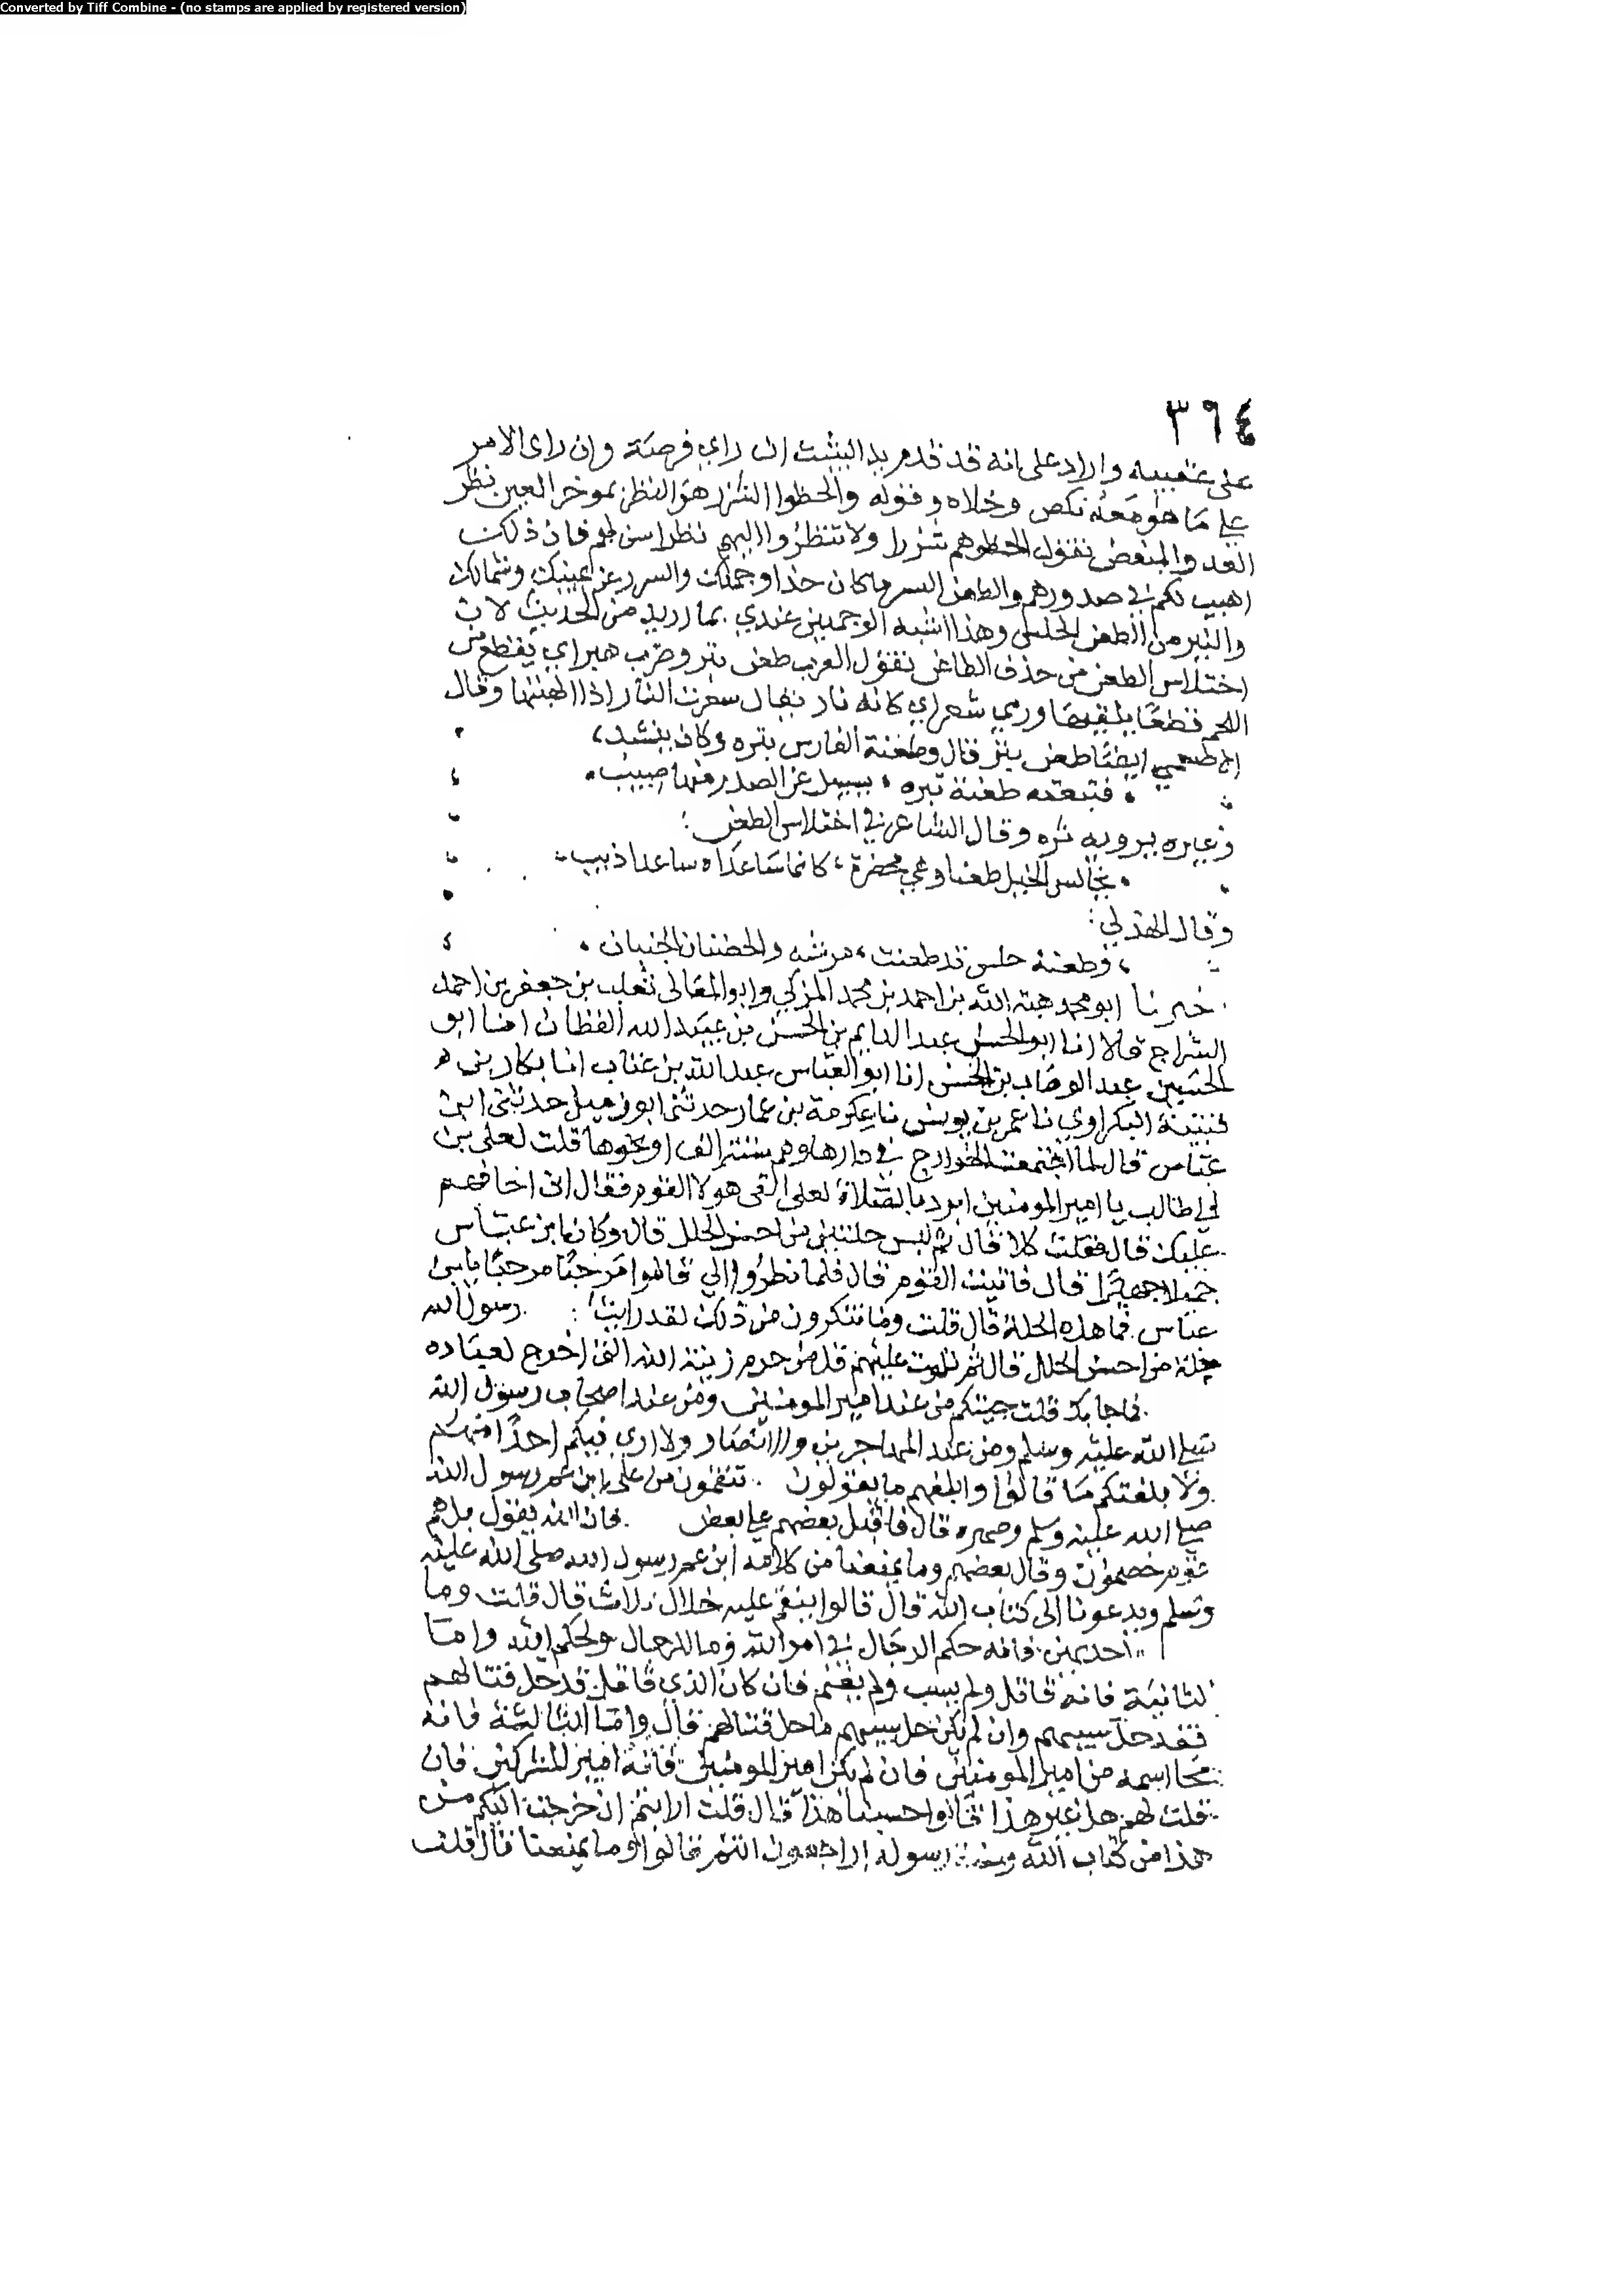 Converted by Tiff Combine - (no stamps are applied by registered version)
٣٩٤
على عقبيه واراد على انه قد قدم يدا ليثبت ان راي فرصة وان راى الامر
على ما هو معه نكص وخلاه وقوله والحظوا الشزر هو النظر بموخر العين نظر
العدو والمبغض يقول الحظوهم شزرا ولا تنظروا اليهم نظرا فان ذلك
اهيب لكم في صدورهم والطعن اليسر ما كان حذا وجهك والشزر عن يمينك وشمالك
والنبر من الطعن الخلس وهذا اشبه الوجهين عندي بما اريد من الحديث لان
اختلاس الطعن من حذق الطاعن تقول العرب طعن نبر وضرب هبر اي يقطع من
اللحم قطعا يلقيها ورمي سعر اي كانه نار يقال سعرت النار اذا الهبتها وقال
الاصمعي ايضا طعن قال وطعنة الفارس وكان ينشد
فتبعته طعنة ثرة يسيل على الصدر منها صبيب
وغيره يرويه ثره وقال الشاعر في اختلاس الطعن :
يخالس الخيل طعنا وهي محضرة كانما ساعداه ساعدا ذيب
وقال الهذلي :
وطعنة خلس قد طعنت
خبرنا ابو محمد هبة الله بن احمد بن محمد المزكي وابو المعالي ثعلب بن جعفر بن احمد
السراج قالا انا ابو الحسن عبد الدايم بن الحسن بن عبيد الله القطان انا ابو
الحسين عبد الوهاب بن الحسن انا ابو العباس عبد الله بن عتاب انا بكار بن
قتيبة البكراوي نا عمر بن يونس نا عكرمة بن عمار حدثني ابو زميل حدثني ابن
عباس قال لما اجتمعت الخوارج في دارها وهم ستة الف او نحوها قلت لعلي بن
ابي طالب يا امير المومنين ابرد بالصلاة لعلي القى هولا القوم فقال اني اخافهم
عليك قال فقلت كلا قال ثم لبس حلتين من احسن الحلل قال وكان ابن عباس
جميلا جهيرا قال فاتيت القوم قال فلما نظروا الي قالوا مرحبا مرحبا يابن
عباس فما هذه الحلة قال قلت وما تنكرون من ذلك لقد رايت رسول الله
حلة من احسن الحلل قال ثم تلوت عليهم قل من حرم زينة الله التي اخرج لعباده
فما جا بك قلت جيتكم من عند امير المومنين ومن عند اصحاب رسول الله
صلى الله عليه وسلم ومن عند المهاجرين والانصار ولا ارى فيكم احدا منهم
ولا بلغتكم ما قالوا وابلغهم ما يقولون تنقمون من علي ابن عم رسول الله
صلى الله عليه وسلم وصهره قال فاقبل بعضهم على بعض فان الله يقول بل هم
قوم خصمون وقال بعضهم وما يمنعنا من كلامه ابن عم رسول الله صلى الله عليه
وسلم ويدعونا الى كتاب الله قال قالوا ننقم عليه خلال ثلاث قال قلت وما
احديهن فانه حكم الرجال في امر الله وما للرجال ولحكم الله واما
الثانية فانه قاتل ولم يسب ولم يغنم فان كان الذي قاتل قد حل قتالهم
فقد حل سبيهم وان لم يكن حل سبيهم ما حل قتالهم قال واما الثالثة فانه
محا اسمه من امير المومنين فان لم يكن امير المومنين فانه امير المشركين فان
قلت لهم هل غير هذا قالوا حسبنا هذا قال قلت ارايتم ان خرجت اليكم من
هذا من كتاب الله وسنة رسوله اراجعون انتم قالوا وما يمنعنا قال قلت